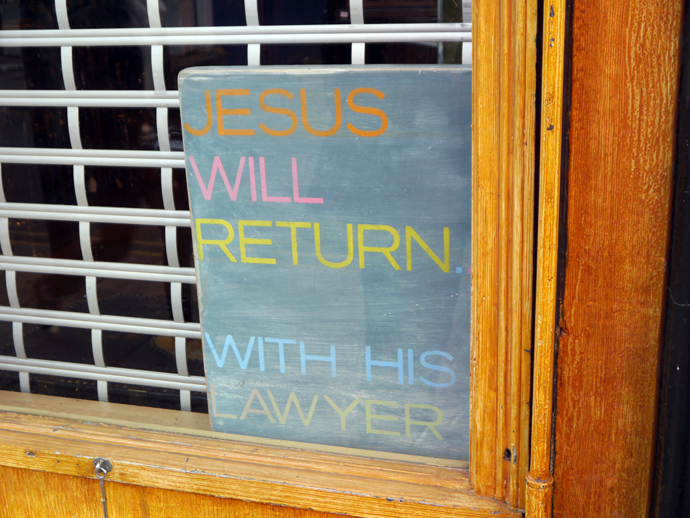 JESUS
WILL
RETURN..
WITH HIS
LAWYER